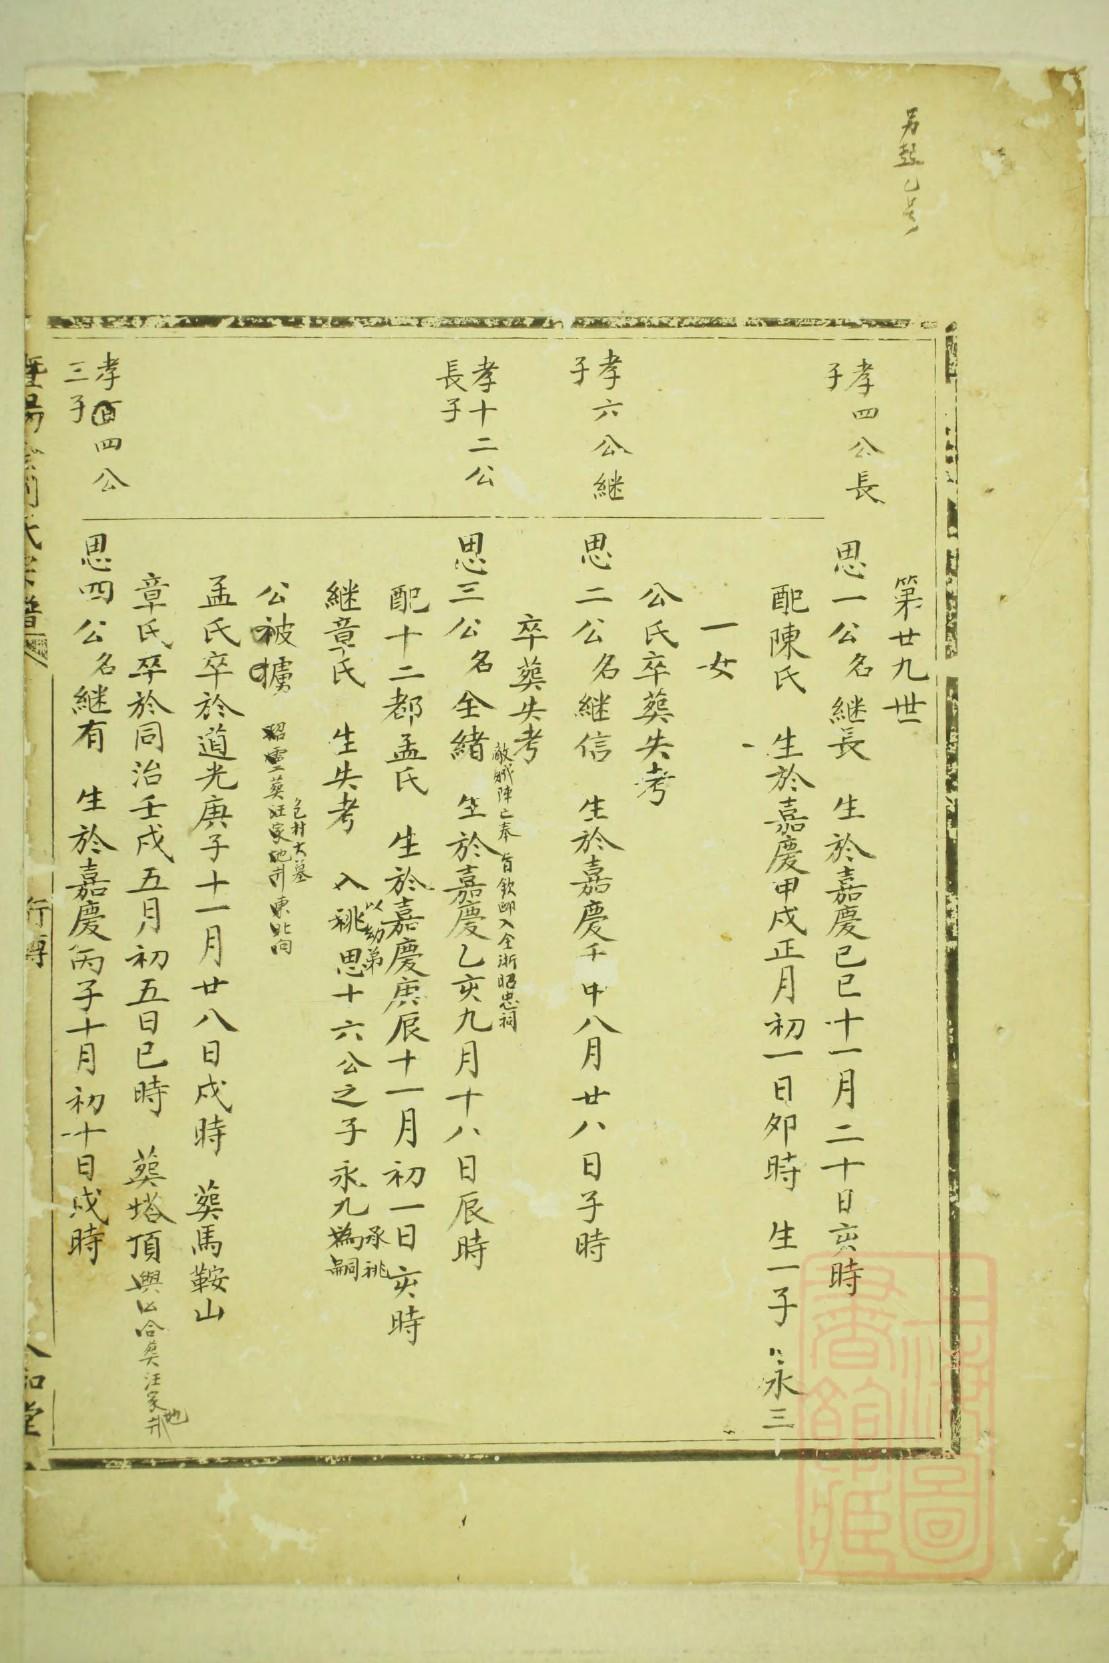 另起乙号
第廿九世
孝四公長
子
思一公名継長　生於嘉慶己巳十一月二十日亥時
配陳氏　生於嘉慶甲戌正月初一日卯時　生一子　永三
一女
公氏卒葬失考
孝六公継
子
思二公名継信　生於嘉慶壬申八月廿八日子時
卒葬失考
孝十二公
長子
思三公名全緒　生於嘉慶乙亥九月十八日辰時
陣亡奉旨欽卹入全浙昭忠祠
配十二都孟氏　生於嘉慶庚辰十一月初一日亥時
継章氏　生失考　入祧思十六公之子永九為嗣
以幼弟
承祧
公被擄
葬汪家地　東北向
村大墓
孟氏卒於道光庚子十一月廿八日戌時　葬馬鞍山
章氏卒於同治壬戌五月初五日巳時　葬塔頂與公合葬汪家地
孝四公
三子
思四公名継有　生於嘉慶丙子十月初十日戌時
氏宗譜
行傳
和堂
上海圖書館藏